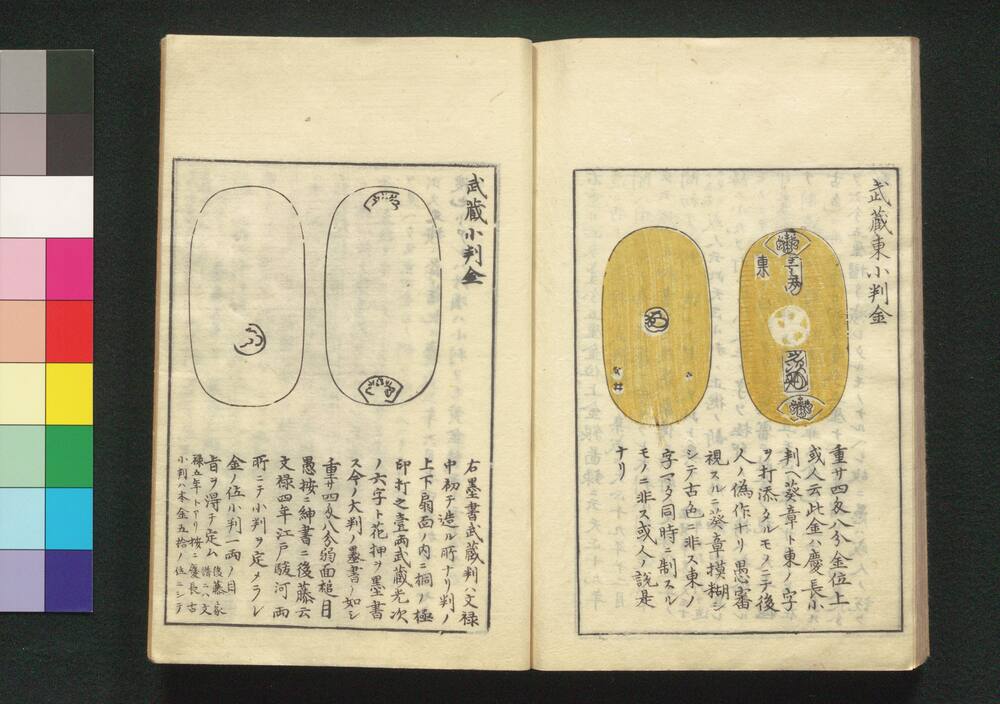 武藏東小判金
東
重サ四匁八分金位上
或人云此金ハ慶長小
判ヘ葵章ト東ノ字
ヲ打添タルモノニテ後
人ノ偽作ナリ愚審
視スルニ葵章摸糊
シテ古色ニ非ス東ノ
字マタ同時ニ制スル
モノニ非ス或人ノ説是
ナリ
武藏小判金
右墨書武蔵判ハ文禄
中初テ造ル所ナリ判ノ
上下扇面ノ内ニ桐ノ極
印打之壹両武蔵光次
ノ六字ト花押ヲ墨書
ス今ノ大判ノ墨書ノ如シ
重サ四匁八分弱面槌目
愚按ニ紳書ニ後藤云
文禄四年江戸駿河両
所ニテ小判ヲ定メラレ
金ノ位小判一両ノ目
旨ヲ得テ定ム後藤家
譜ニハ文
禄五年トアリ按ニ慶長古
小判ハ本金五拾ノ位ニシテ